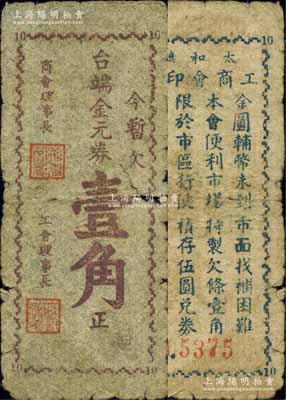 上海陽明拍賣
10
10
今暫欠
台端金元券
壹角
正
商會理事長
工會理事長
10
太和
工商會印
10
金圓輔幣未到市面找補困難
本會便利市場特製欠條壹角
限於市區行使積存伍圓兌券
5375
10
上海陽明拍賣
WWW.YMPM.COM